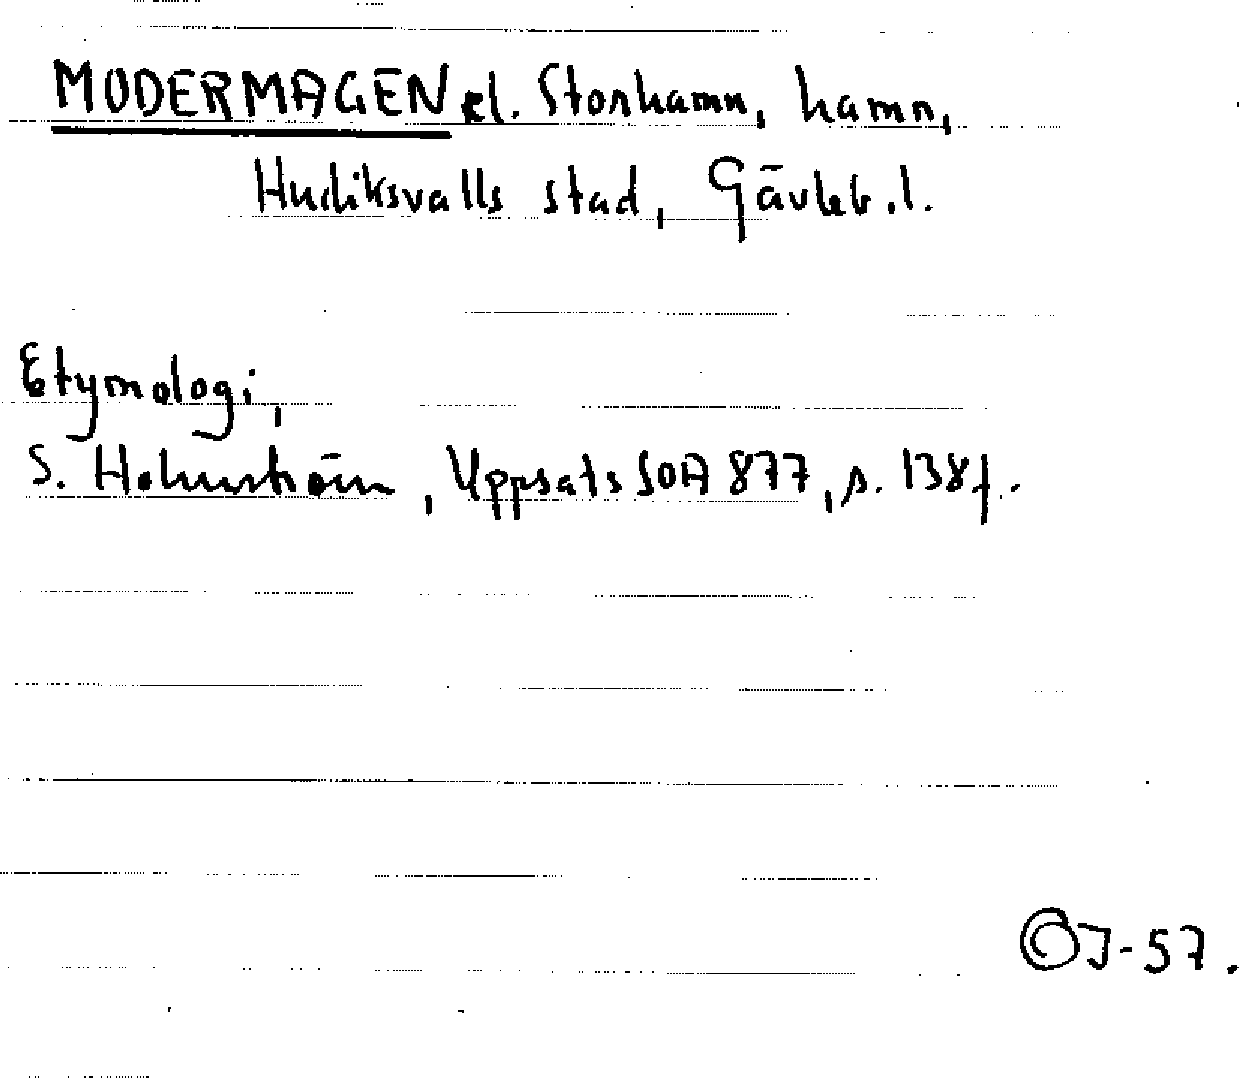 MODERMAGEN el. Storhamn, hamn,
Hudiksvalls stad, Gävleb.l.
Etymologi,
S. Holmström, Uppsats SOA 877, s. 138f.
OJ-57.